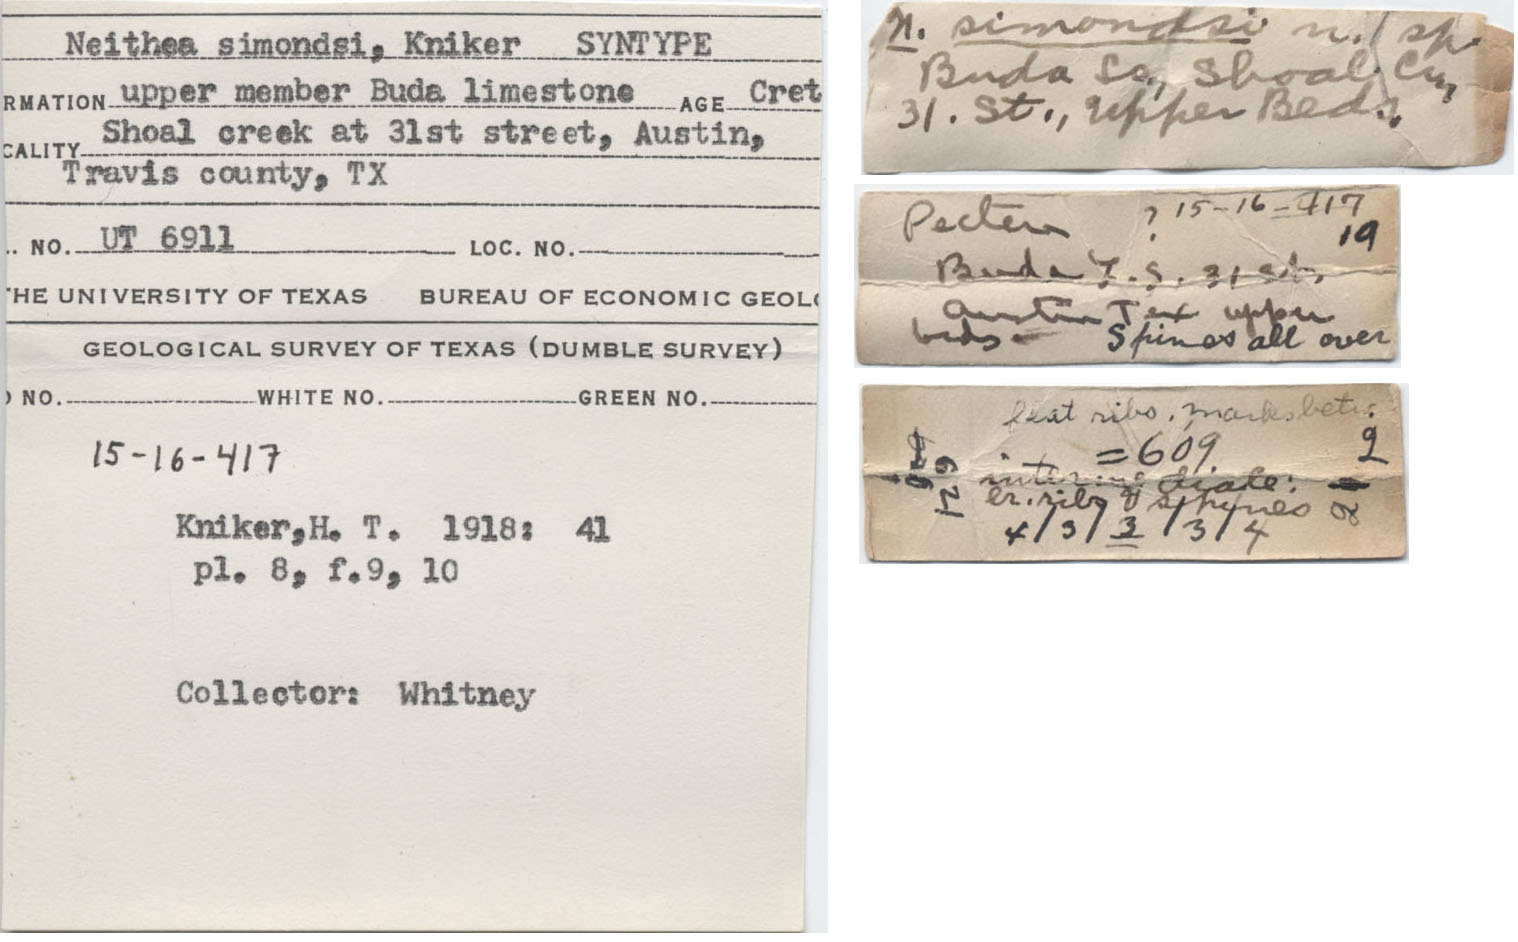 Neithea simondsi, Kniker SYNTYPE
RMATION upper member Buda limestone AGE Cret
CALITY Shoal creek at 31st street, Austin,
Travis county, TX
. NO. UT 6911 LOC. NO.
THE UNIVERSITY OF TEXAS BUREAU OF ECONOMIC GEOLO
GEOLOGICAL SURVEY OF TEXAS (DUMBLE SURVEY)
NO. WHITE NO. GREEN NO.
15-16-417
Kniker,H. T. 1918: 41
pl. 8, f.9, 10
Collector: Whitney
N. simondsi n. sp.
Buda Shoal
31. St., upper Beds.
Pecten ? 15-16-417
19
Buda L.S. 31 st.
Austin Tex upper
beds- Spines all over
ribs, marks betw.
=609
intermediate:
ribs spines
4/3/3/3/4